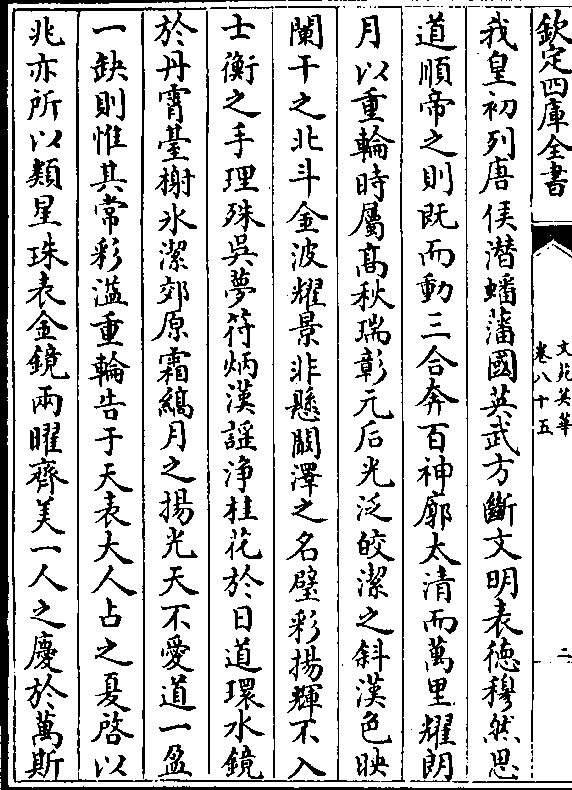 欽定四庫全書
文苑英華
卷八十五
二
我皇初列唐侯潛蟠藩國英武方斷文明表德穆然思
道順帝之則既而動三合奔百神廓太清而萬里耀朗
月以重輪時屬高秋瑞彰元后光泛皎潔之斜漢色映
闌干之北斗金波耀景非懸闞澤之名璧彩揚輝不入
士衡之手理殊吳夢符炳漢謡浄桂花於日道環水鏡
於丹霄臺榭氷潔郊原霜縞月之揚光天不愛道一盈
一缺則惟其常彩溢重輪告于天表大人占之夏啓以
兆亦所以類星珠表金鏡兩曜齊美一人之慶於萬斯